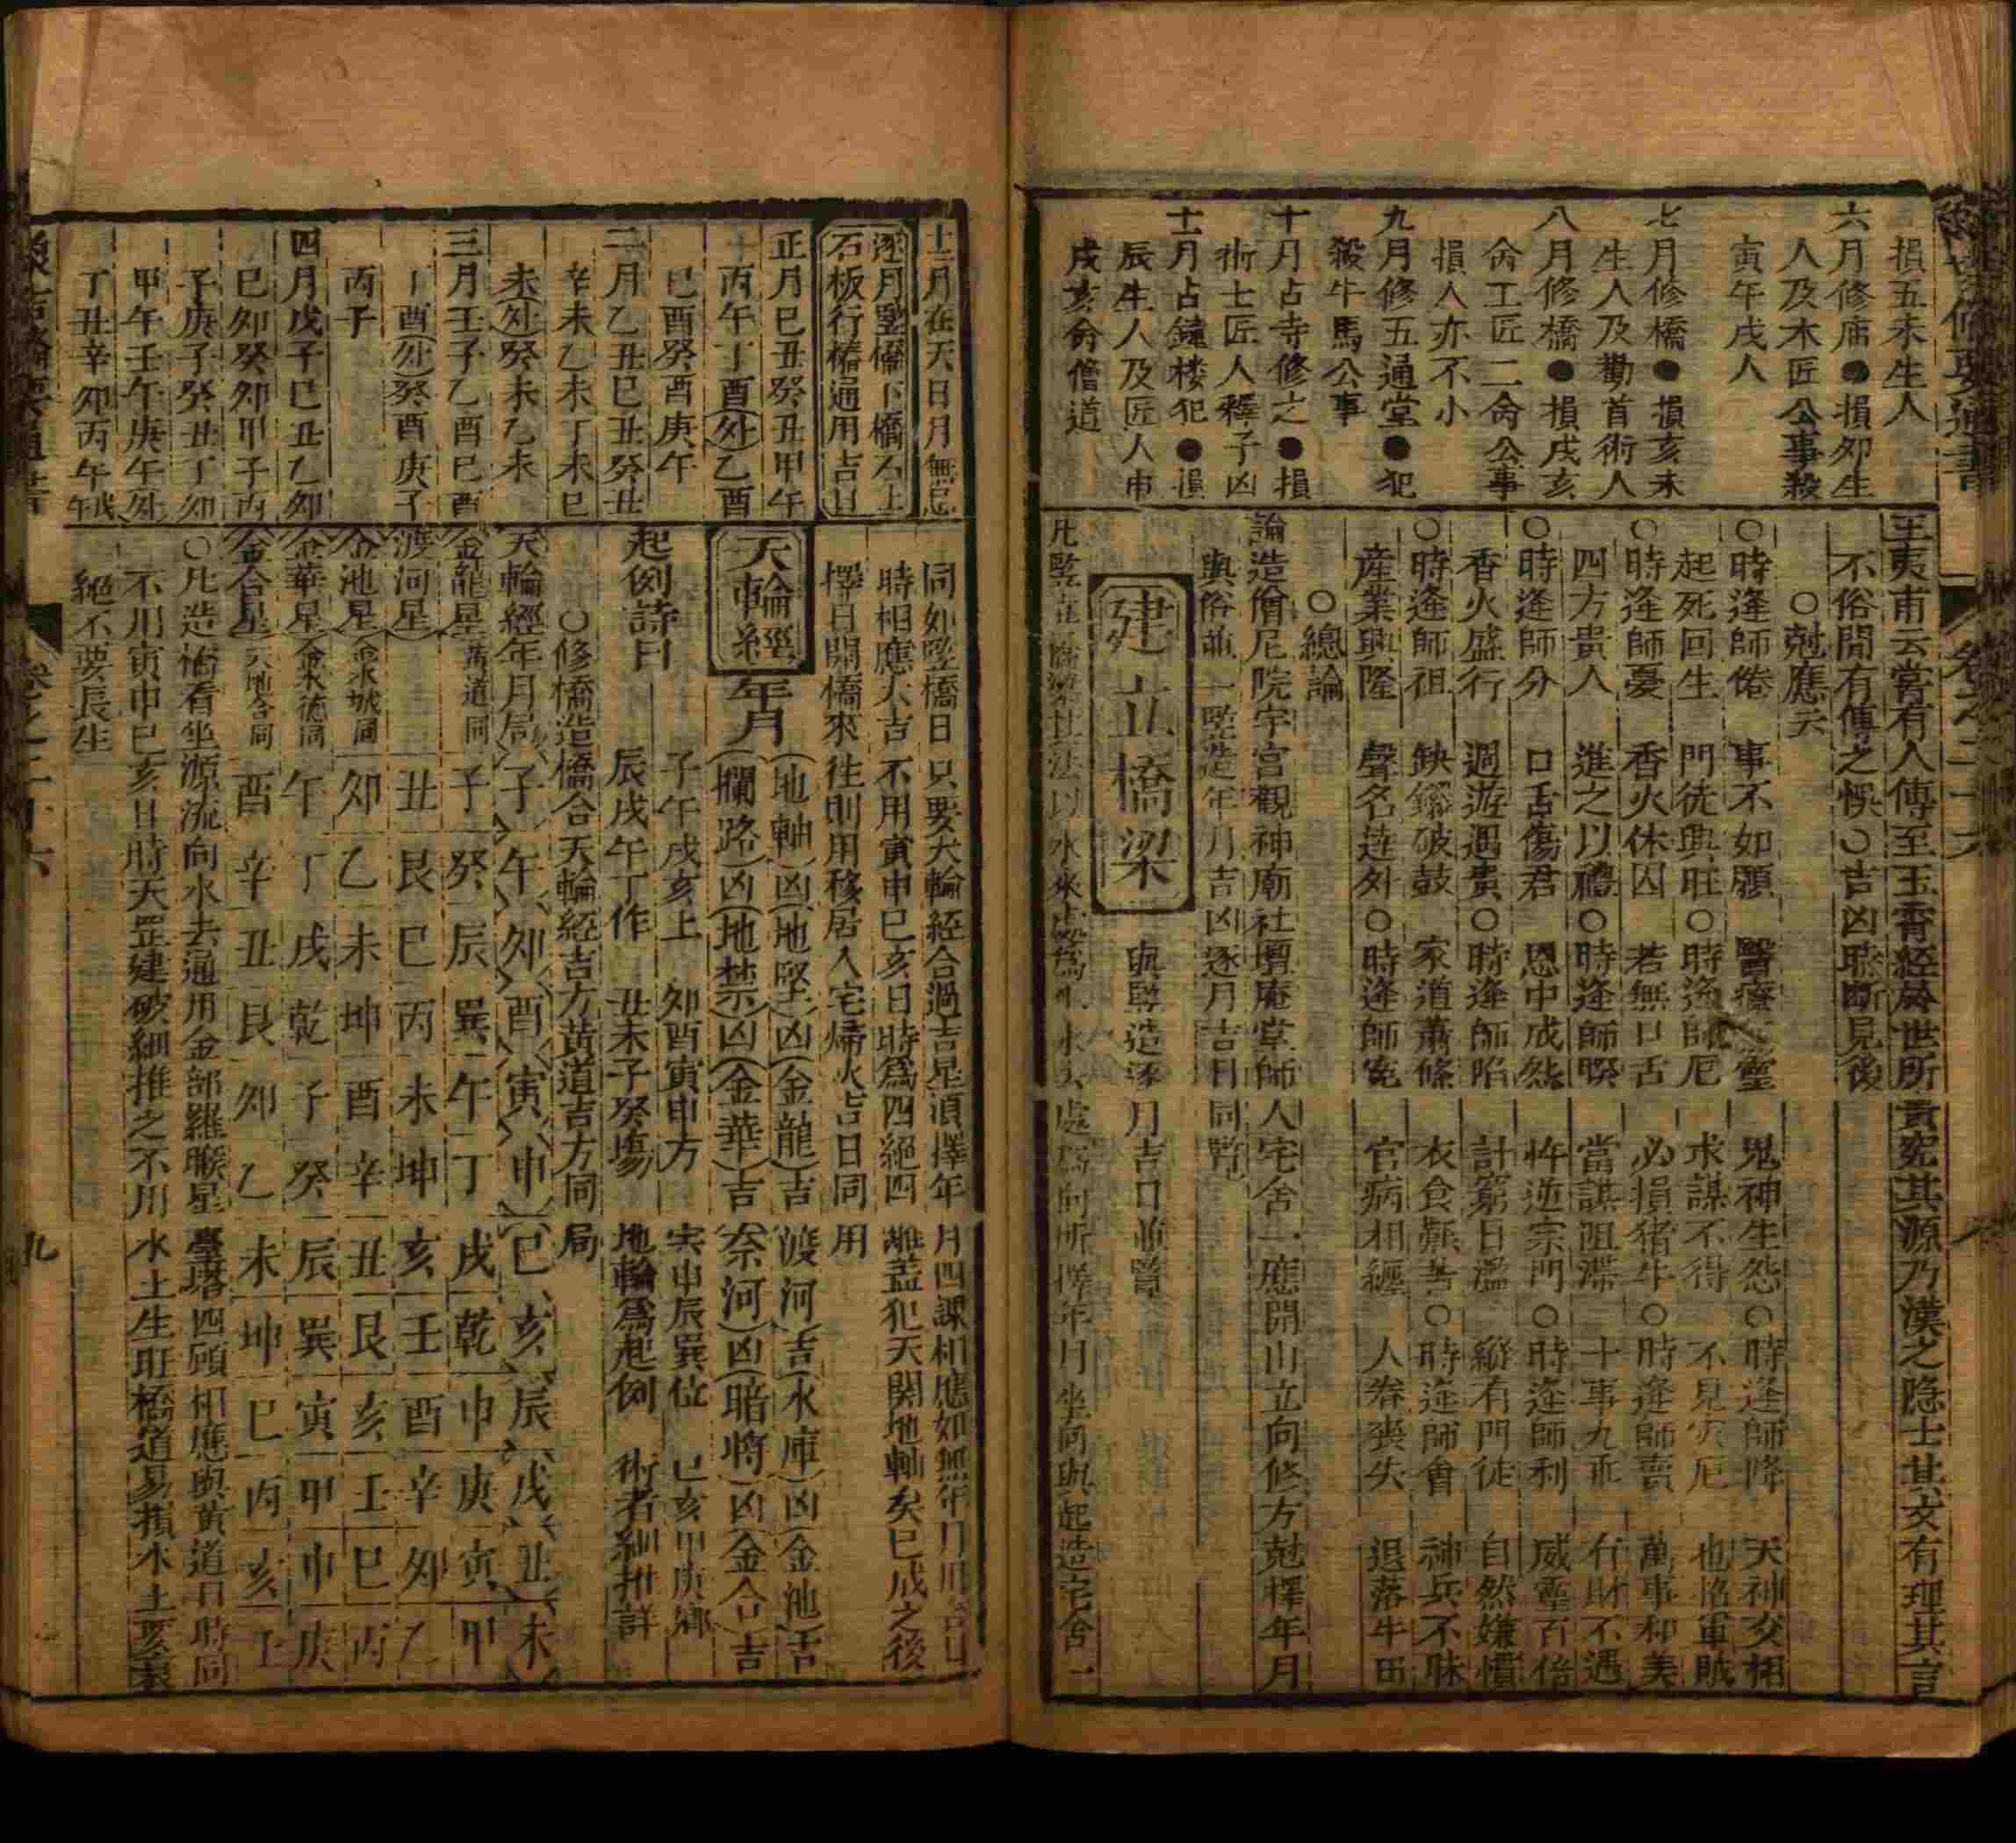 損五未生人
六月修庙●損夘生
人及木匠公事殺
寅午戌人
七月修橋●損亥未
生人及勸首術人
八月修橋●損戌亥
命工匠二命公事
損人亦不小
九月修五通堂●犯
殺牛馬公事
十月占寺修之●損
術士匠人釋子凶
十一月占鐘楼犯●損
辰生人及匠人申
戌亥命僧道
王夷甫云嘗有人傳至玉霄經於世所貴宪其源乃漢之隐士其文有理其言
不俗閒有傳之悮○吉凶聮断見後
○尅應六
○時逢師倦　事不如願　醫療　靈　鬼神生怨○時逢師降　天神交相
起死回生　門徒興旺○時逢師厄　求謀不得　不見灾厄　也恊軍賊
○時逢師憂　香火休囚　若無口舌　必損猪牛○時逢師賣　萬事和美
四方貴人　進之以禮○時逢師暌　當謀阻滯　十事九乖　有財不遇
○時逢師分　口舌傷君　恩中成怨　忤逆宗門○時逢師利　威靈百倍
香火盛行　過遊遇貴○時逢師陷　計窮日濫　縱有門徒　自然嫌慣
○時逢師祖　鈌鑼破鼓　家道蕭條　衣食艱苦○時逢師會　神兵不昧
産業興隆　聲名逹外○時逢師寃　官病相纒　人眷丧失　退落牛田
○總論
論造僧尼院宇宮觀神廟社壇庵堂師人宅舍一應開山立向修方尅擇年月
與俗 一 造年月吉凶逐月吉日同覽
建立橋梁　與 造逐月吉日並覽
凡竪造橋梁 法以水來處爲 水去處爲向所擇年月坐向與起造宅舍一
十二月在天日月無忌
逐月竪橋下橋石上
石板行樁通用吉日
正月巳丑癸丑甲午
丙午丁酉(外)乙酉
巳酉癸酉庚午
二月乙丑巳丑癸丑
辛未乙未丁未巳
未(外)癸未乙未
三月壬子乙酉巳酉
丁酉(外)癸酉庚子
丙子
四月戊子巳丑乙夘
巳夘癸夘甲子丙
子庚子癸丑丁夘
甲午壬午庚午外
丁丑辛夘丙午
同如竪橋日只要天輪經合過吉星湏擇年月四課相應如無年月用合日
時相應大吉不用寅申巳亥日時爲四絕四 盖犯天関地軸矣巳成之後
擇日開橋來往則用移居入宅歸火吉日同用
天輪經 年月 (地軸)凶(地堅)凶(金龍)吉(渡河)吉(水庫)凶(金池)吉
(攔路)凶(地禁)凶(金華)吉(奈河)凶(暗將)凶(金合)吉
起例詩曰　子午戌亥上　夘酉寅申方　宎申辰巽位　巳亥甲庚鄉
辰戌午丁作　丑未子癸塲　地輪為起例　術者細推詳
○修橋造橋合天輪經吉方黃道吉方同局
天輪經年月局 子 午 夘 酉 寅 申 巳 亥 辰 戌 丑 未
金龍星 黃道同 子 癸 辰 巽 午 丁 戌 乾 申 庚 寅 甲
渡河星 丑 艮 巳 丙 未 坤 亥 壬 酉 辛 夘 乙
金池星 金水城同 夘 乙 未 坤 酉 辛 丑 艮 亥 壬 巳 丙
金華星 金水德同 午 丁 戌 乾 子 癸 辰 巽 寅 甲 申 庚
金合星 天地合同 酉 辛 丑 艮 夘 乙 未 坤 巳 丙 亥 壬
○凡造橋看坐源流向水去通用金部羅睺星臺塔四顧相應與黃道日時同
不用寅申巳亥日時天罡建破細推之不用水土生旺橋道易損水土
絕不要長生
卷之二十六
九